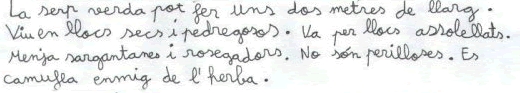 La serp verda pot fer uns dos metres de llarg.
Viu en llocs secs i pedregosos. Va per llocs assolellats.
Menja sargantanes i rosegadors. No són perilloses. Es
camufla enmig de l'herba.